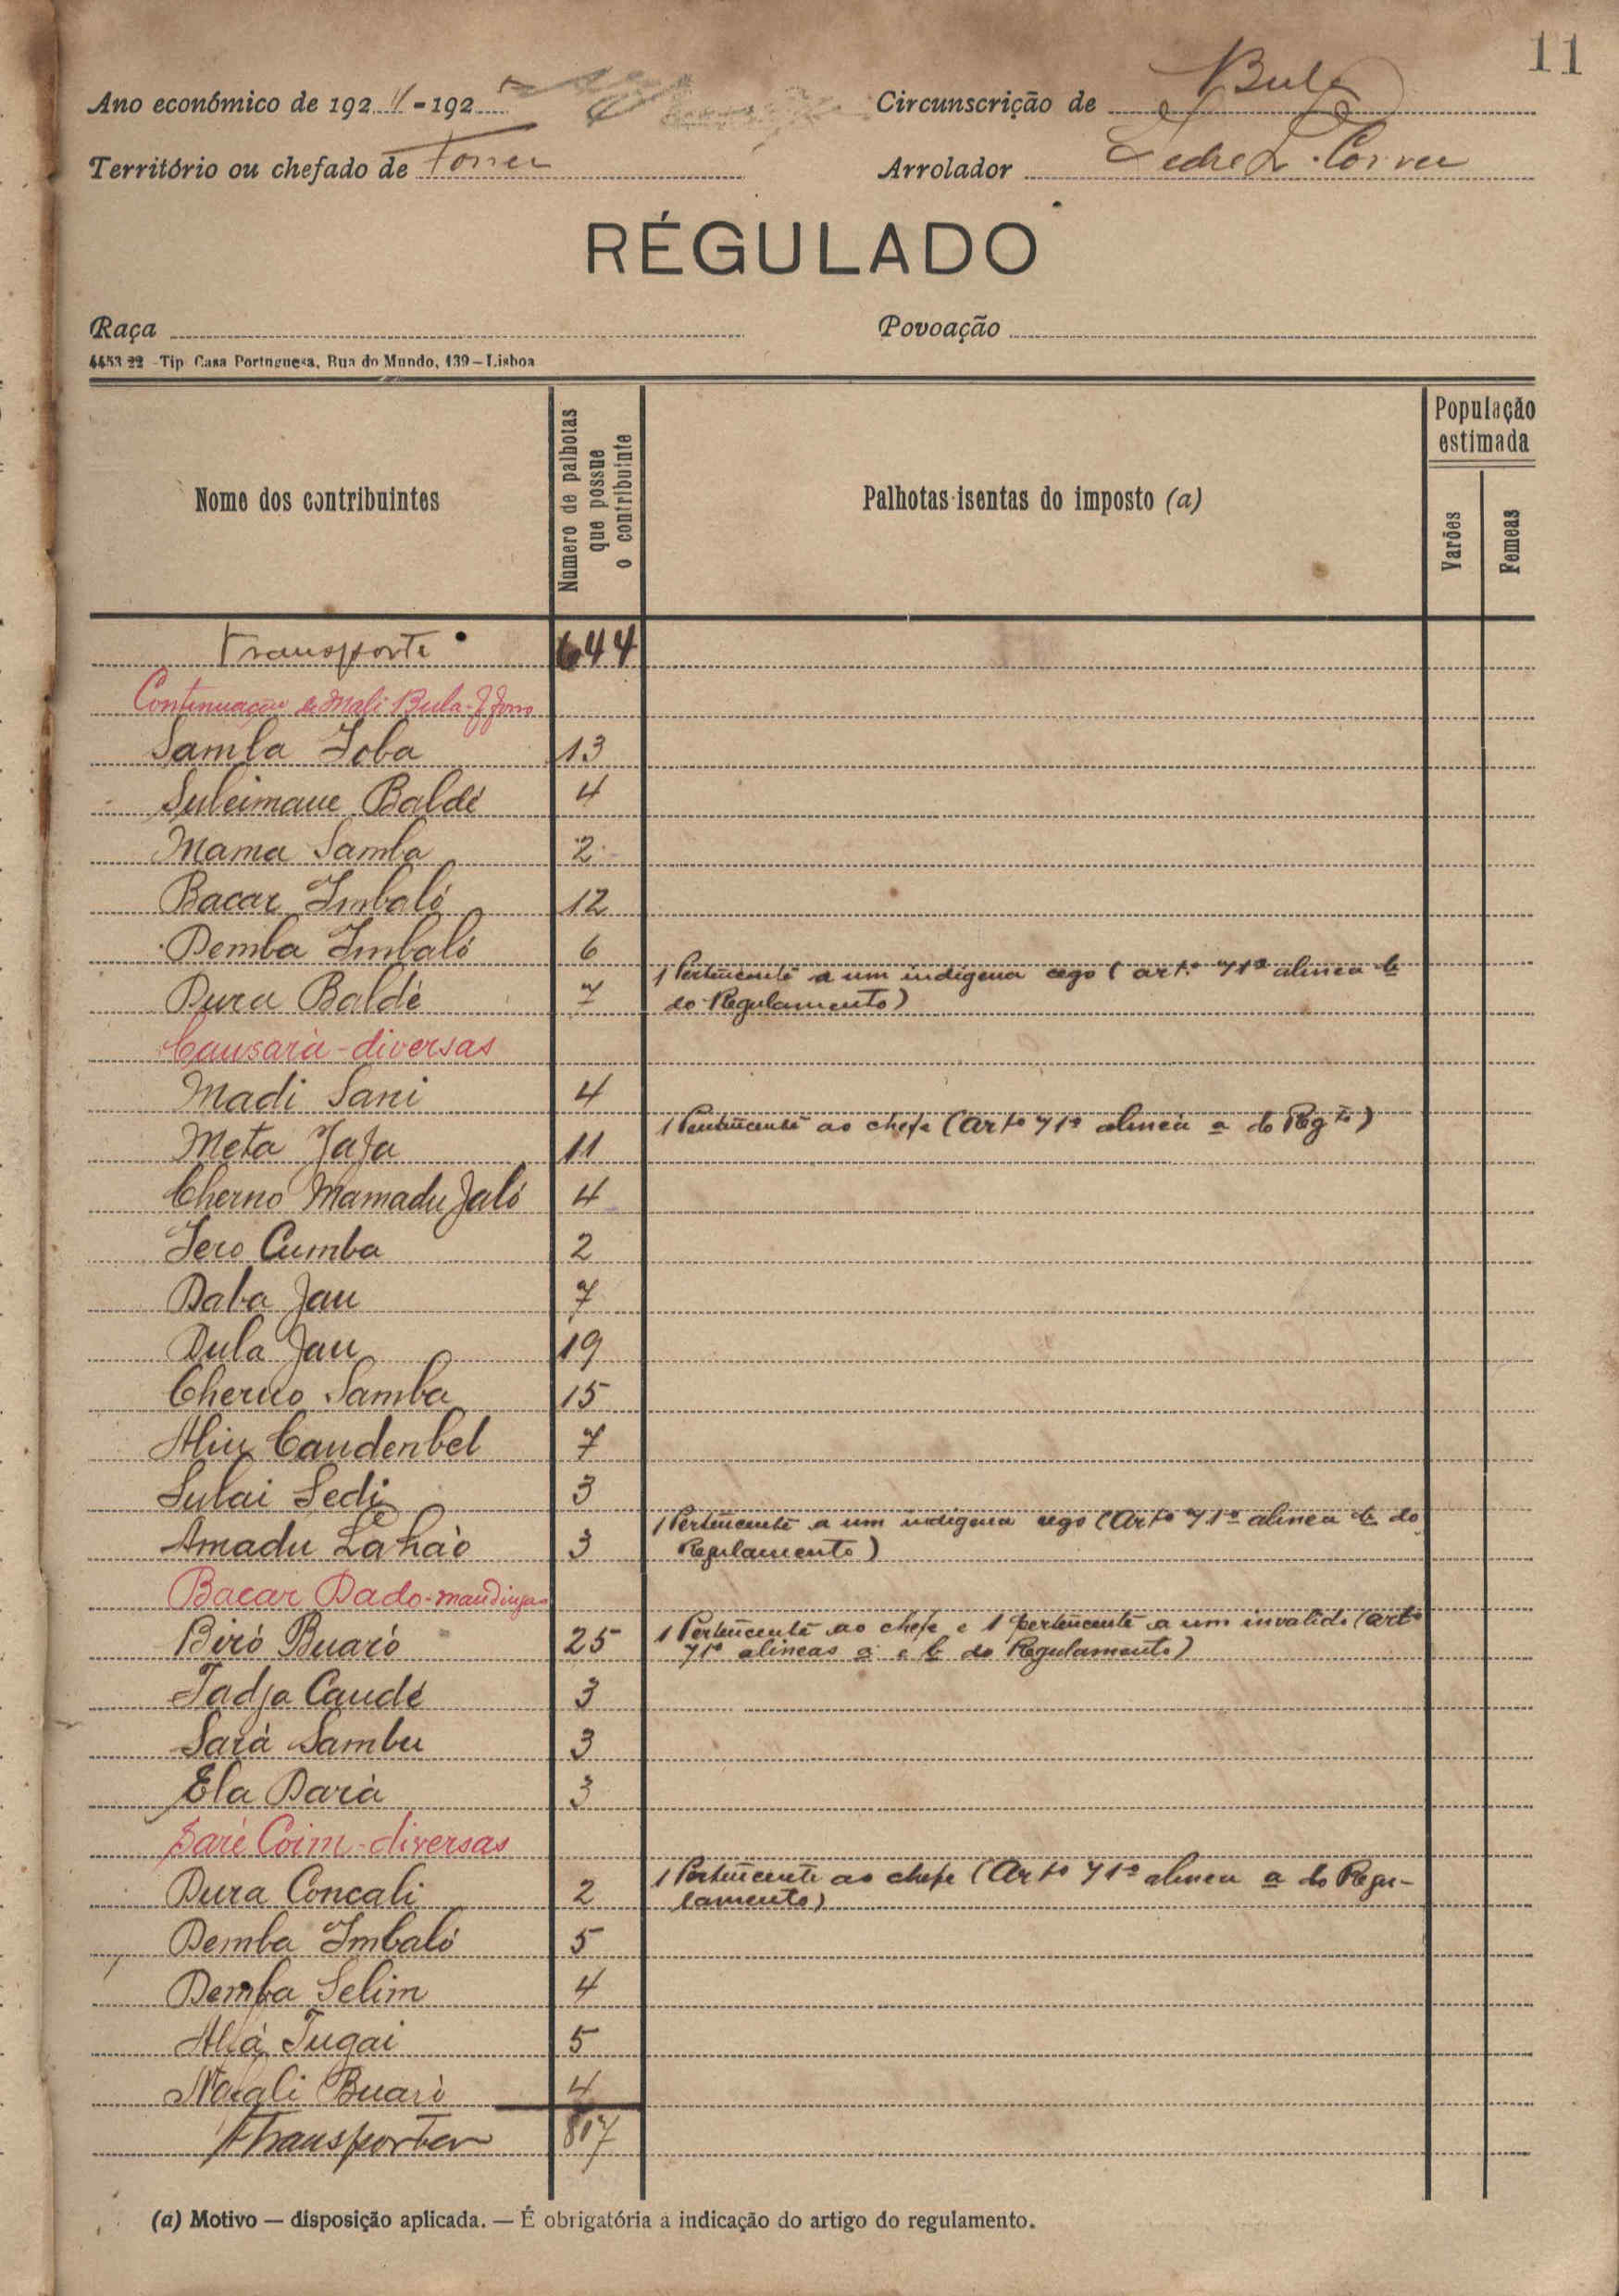 11
Ano económico de 1924-1925 Circunscrição de Bula
Território ou chefado de Arrolador
RÉGULADO
Raça Povoação
4453 22 - Tip Casa Portuguesa, Rua do Mundo, 139 — Lisboa
Nome dos contribuintes
Número de palhotas que possue o contribuinte
Palhotas isentas do imposto (a)
População estimada
Varões
Femeas
Transporte 644
Continuação de Mali Bula
Samba Joba 13
Suleimane Baldé 4
Mama Samba 2
Bacar Imbaló 12
Demba Imbaló 6
Dura Baldé 7 1 Pertencente a um indígena cego (artº 71º alinea b
do Regulamento)
Causará - diversas
Madi Sani 4
Meta Jaja 11 1 Pertencente ao chefe (Artº 71º alinea a do Regtº)
Cherno Mamadu Jaló 4
Jero Cumba 2
Daba Jau 7
Dula Jau 19
Cherno Samba 15
Aliu Candenbel 7
Sulai Sedi 3
Amadu 3 1 Pertencente a um indígena cego (Artº 71º alinea b do
Regulamento)
Bacar Dado - mandingas
Biró Buaró 25 1 Pertencente ao chefe e 1 pertencente a um invalido (artº
71º alineas a e b do Regulamento)
Tadja Caudé 3
Sará Sambu 3
Ela Dará 3
Saré Coim - diversas
Dura Concali 2 1 Pertencente ao chefe (Artº 71º alinea a do Regu-
lamento)
Demba Imbaló 5
Demba Selim 4
Aliá Tugai 5
Buaró 4
A Transportar 817
(a) Motivo — disposição aplicada. — É obrigatória a indicação do artigo do regulamento.